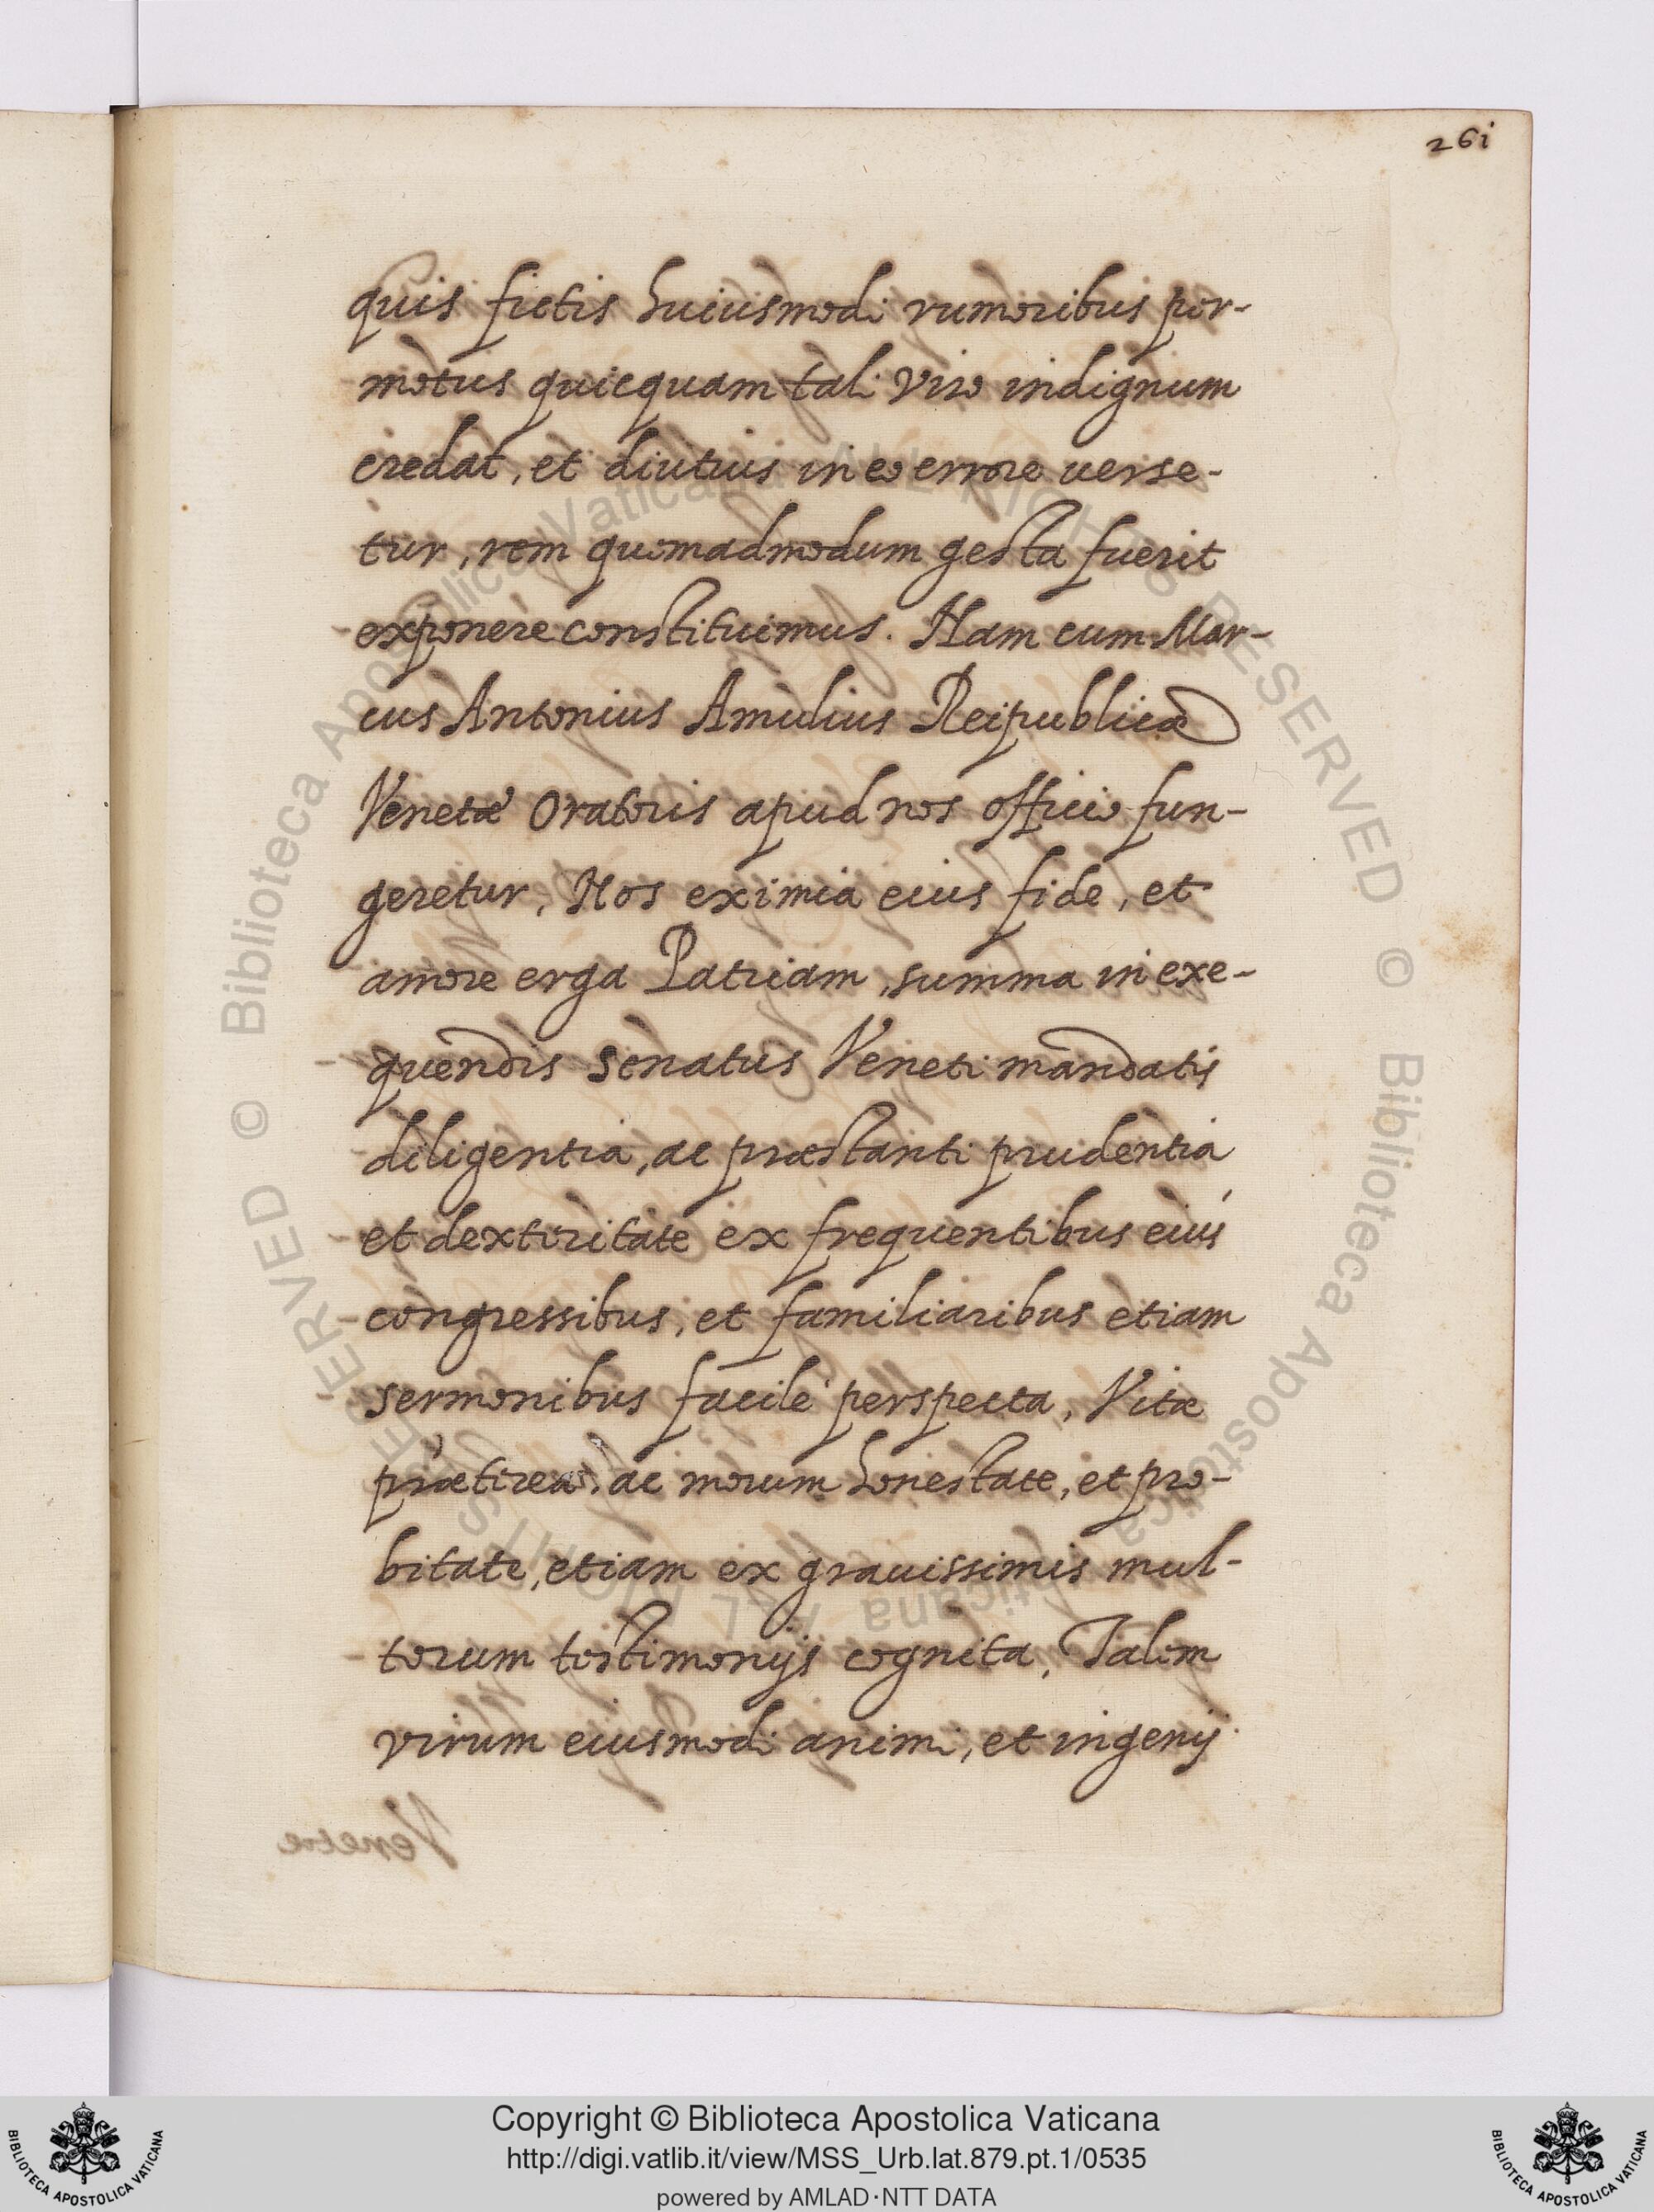 261
quis fictis huiusmodi rumoribus per-
motus quicquam tali viro indignum
credat, et diutius in eo errore uerse-
tur, rem quomadmodum gesta fuerit
exponere constituimus. Nam cum Mar-
cus Antonius Amulius Reipublicæ
Venetæ Oratoris apud nos officio fun-
geretur, Nos eximia eius fide, et
amore erga Patriam, summa in exe-
quendis senatus Veneti mandatis
diligentia, ac præstanti prudentia
et dexteritate ex frequentibus eius
congressibus, et familiaribus etiam
sermonibus facile perspecta, Vitæ
præterea, ac morum honestate, et pro-
bitate, etiam ex grauissimis mul-
torum testimonijs cognita, Talem
virum eiusmodi animi, et ingenij
© Biblioteca Apostolica Vaticana ALL RIGHTS RESERVED
© Biblioteca Apostolica Vaticana ALL RIGHTS RESERVED
Copyright © Biblioteca Apostolica Vaticana
http://digi.vatlib.it/view/MSS_Urb.lat.879.pt.1/0535
powered by AMLAD·NTT DATA
BIBLIOTECA APOSTOLICA VATICANA
BIBLIOTECA APOSTOLICA VATICANA